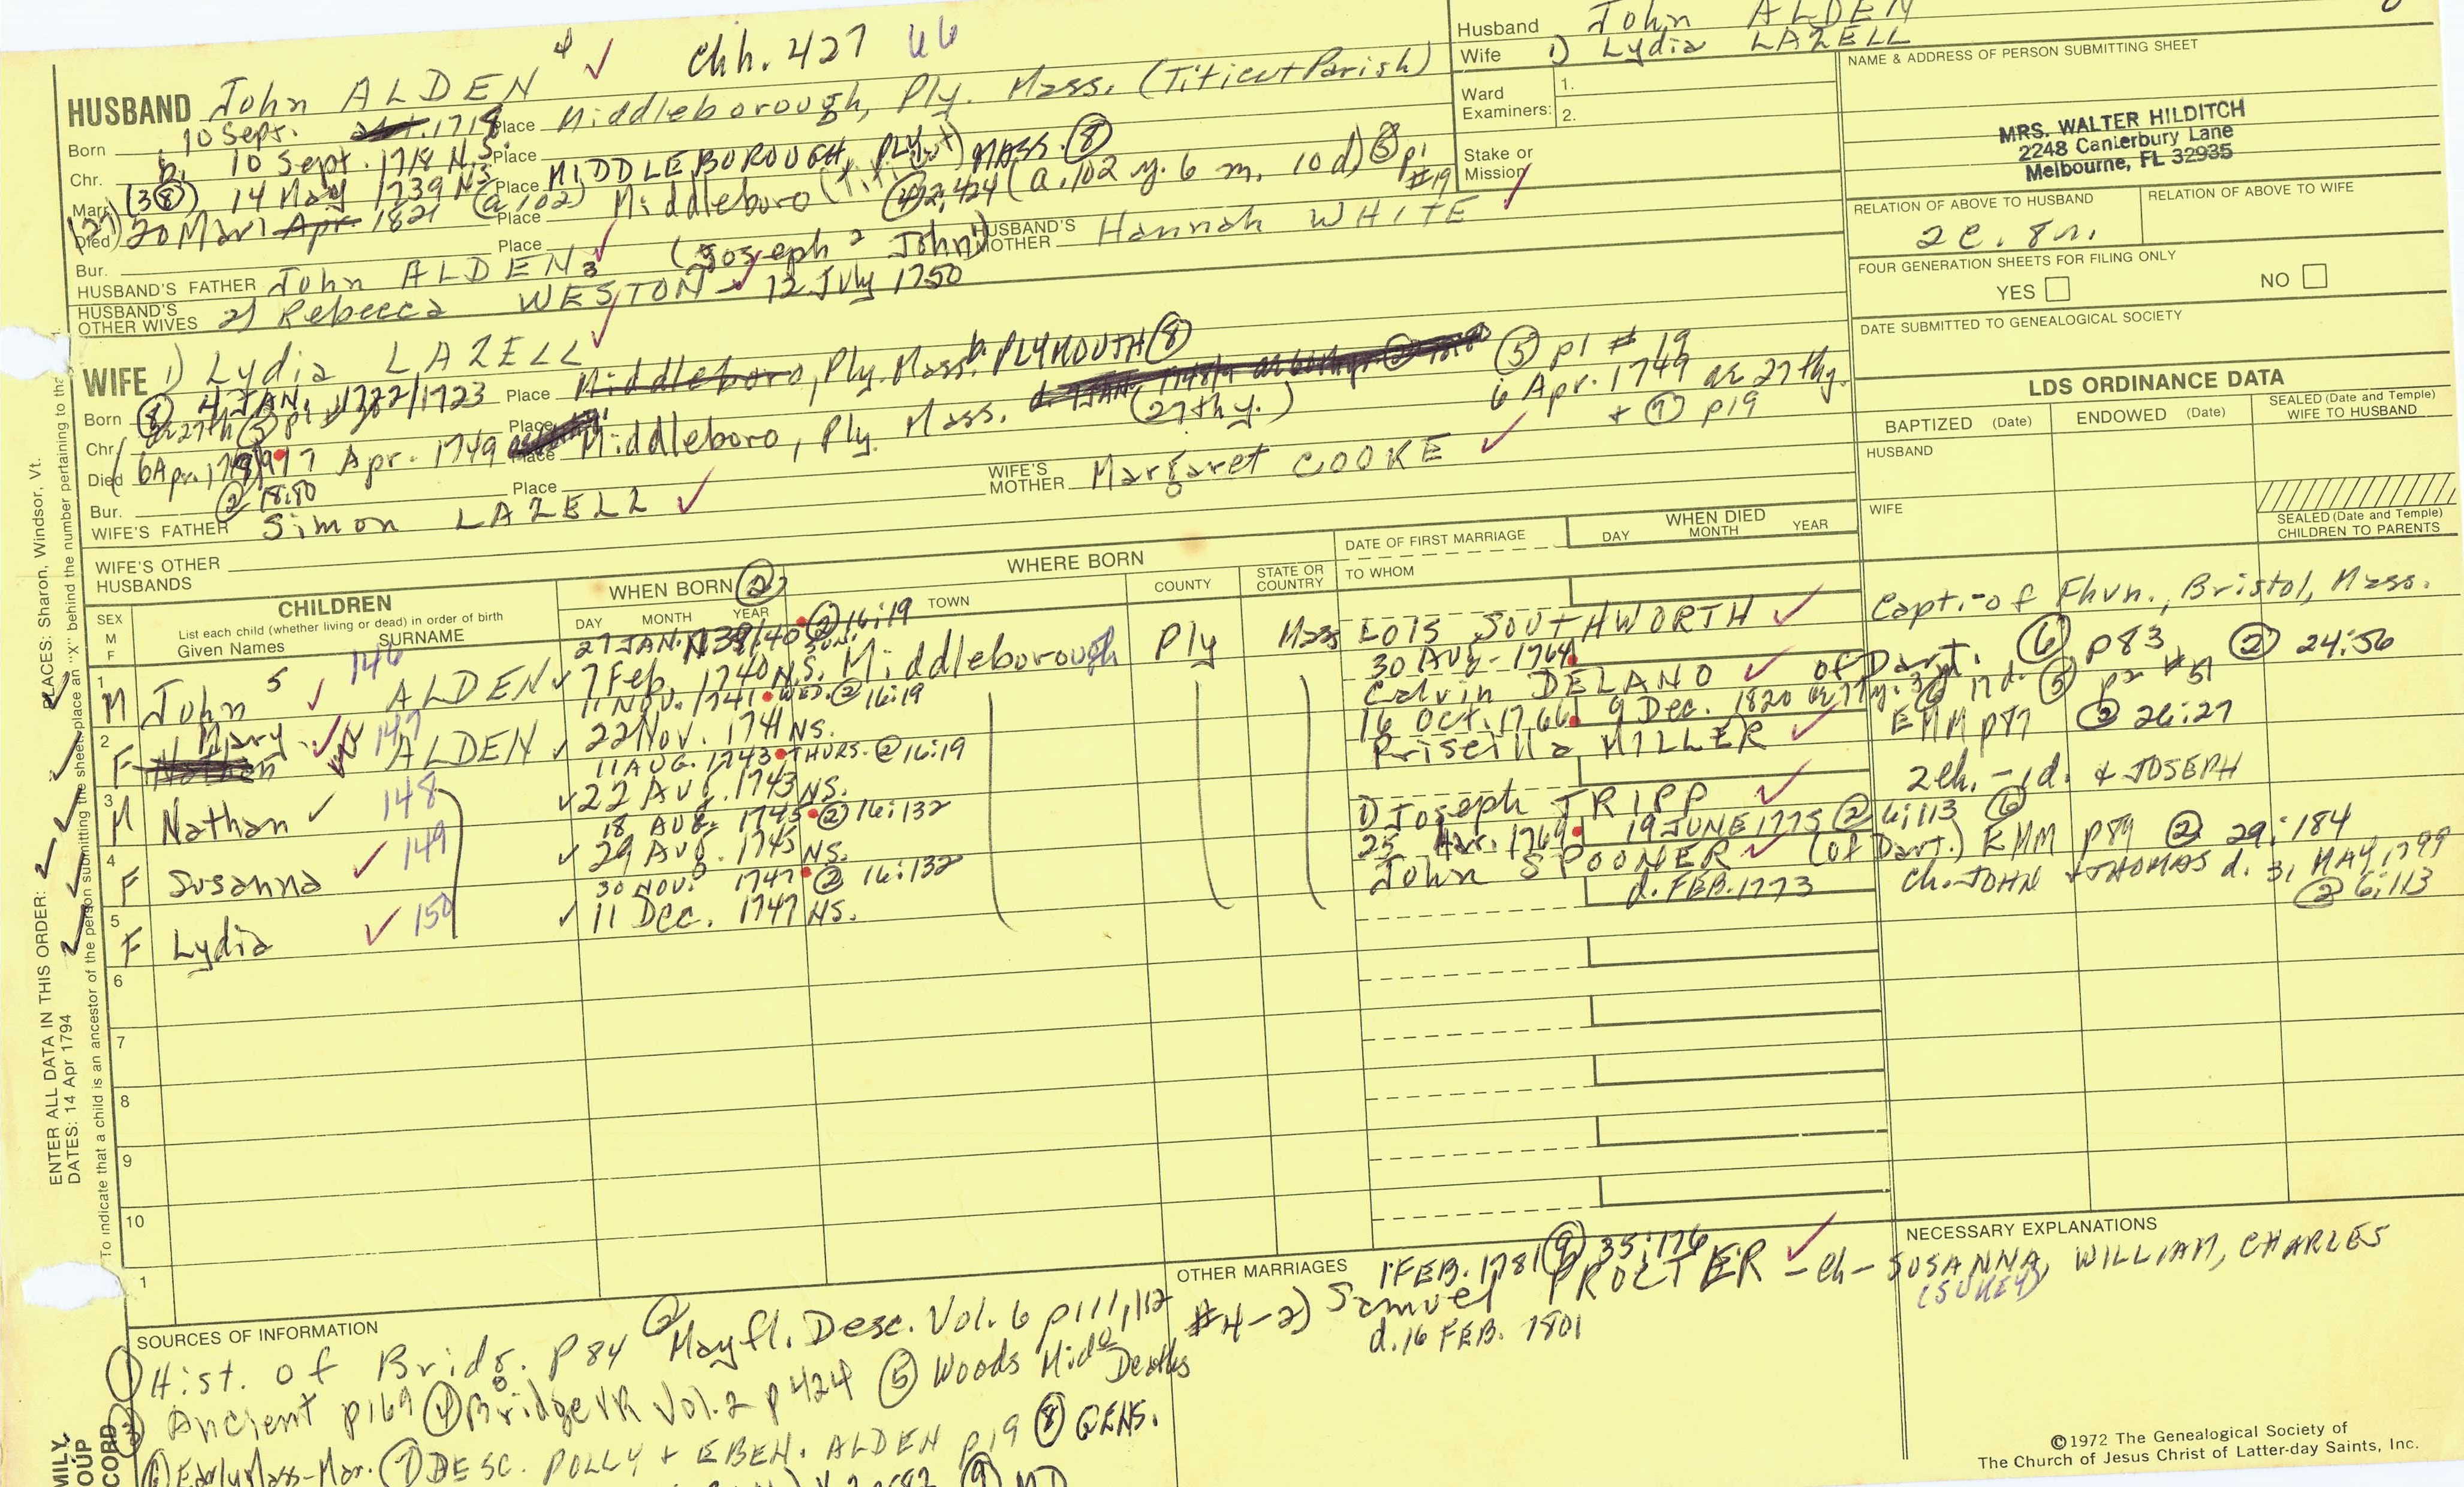 4 ✓ Chh. 427 66
HUSBAND John ALDEN
Born 10 Sept. 1718 Place Middleborough, Ply. Mass. (Titicut Parish)
Chr. b. 10 Sept. 1718 N.S. Place MIDDLEBOROUGH, PLY MASS. (8)
Marr. (3(8)) 14 May 1739 NS Place Middleboro (Titicut)
Died (27) 20 Mar Apr. 1821 (a 102) Place (4) 2,424 (a. 102 y. 6 m. 10 d) (5) p1 #19
Bur. Place
HUSBAND'S FATHER John ALDEN 3 (Joseph 2 John) HUSBAND'S MOTHER Hannah WHITE
HUSBAND'S OTHER WIVES 2) Rebecca WESTON 12 July 1750
WIFE 1) Lydia LAZELL
Born (8) 4 JAN. 1722/1723 Place Middleboro, Ply. Mass. b. PLYMOUTH (8)
(5) p1 # 19
6 Apr. 1749 ae 27thy.
+ (7) p19
Chr. Place
Died (6 Apr. 1749 7 Apr. 1749 Place Middleboro, Ply. Mass. (27th y.)
(2) 18:80
Bur. Place
WIFE'S FATHER Simon LAZELL WIFE'S MOTHER Margaret COOKE
WIFE'S OTHER HUSBANDS
Husband John ALDEN
Wife 1) Lydia LAZELL
Ward Examiners: 1.
2.
Stake or Mission
NAME & ADDRESS OF PERSON SUBMITTING SHEET
MRS. WALTER HILDITCH
2248 Canterbury Lane
Melbourne, FL 32935
RELATION OF ABOVE TO HUSBAND RELATION OF ABOVE TO WIFE
2c. 8r.
FOUR GENERATION SHEETS FOR FILING ONLY
YES NO
DATE SUBMITTED TO GENEALOGICAL SOCIETY
LDS ORDINANCE DATA
BAPTIZED (Date) ENDOWED (Date) SEALED (Date and Temple) WIFE TO HUSBAND
HUSBAND
WIFE
SEALED (Date and Temple) CHILDREN TO PARENTS
SEX M F
CHILDREN
List each child (whether living or dead) in order of birth
Given Names SURNAME
WHEN BORN (2)
DAY MONTH YEAR
WHERE BORN
TOWN COUNTY STATE OR COUNTRY
DATE OF FIRST MARRIAGE
TO WHOM
WHEN DIED
DAY MONTH YEAR
27 JAN. 1739/40 (2) 16:19 SUN.
1 M John 5 146 ALDEN 7 Feb. 1740 N.S. Middleborough Ply Mass LOIS SOUTHWORTH Capt. of Fhvn., Bristol, Mass.
11 NOV. 1741 WED. (2) 16:19 30 AUG - 1764
2 F Mary 147 ALDEN 22 Nov. 1741 NS. Calvin DELANO of Dart. (6) p83 (2) 24:56
11 AUG. 1743 THURS. (2) 16:19 16 Oct. 1766 9 Dec. 1820 ae 77y. 3 17 d. (5) p2 #51
3 M Nathan 148 22 Aug. 1743 NS. Priscilla MILLER EMM p87 (2) 26:27
18 AUG. 1745 (2) 16:132
4 F Susanna 149 29 Aug. 1745 NS. 1) Joseph TRIPP 2 ch. - 1 d. & JOSEPH
30 NOV. 1747 (2) 16:132 25 Mar. 1769 19 JUNE 1775 (2) 6:113 (6)
5 F Lydia 150 11 Dec. 1747 NS. John SPOONER (of Dart.) EMM p89 (2) 29:184
d. FEB. 1773 ch. JOHN + THOMAS d. 31 MAY, 1799
(2) 6:113
6
7
8
9
10
1
SOURCES OF INFORMATION
(1) Hist. of Bridg. p 84 (2) Mayfl. Desc. Vol. 6 p111,112
(3) Ancient p169 (4) Bridge VR Vol. 2 p 424 (5) Woods Mido Deaths
(6) Early Mass-Mar. (7) DESC. POLLY + EBEN. ALDEN p19 (8) GENS.
(9) MD
OTHER MARRIAGES
1 FEB. 1781 (9) 35:176
#4-2) Samuel PROCTER - ch - SUSANNA, WILLIAM, CHARLES
(SUKEY)
d. 16 FEB. 1801
NECESSARY EXPLANATIONS
©1972 The Genealogical Society of
The Church of Jesus Christ of Latter-day Saints, Inc.
ENTER ALL DATA IN THIS ORDER:
DATES: 14 Apr 1794
PLACES: Sharon, Windsor, Vt.
To indicate that a child is an ancestor of the person submitting the sheet, place an "X" behind the number pertaining to that